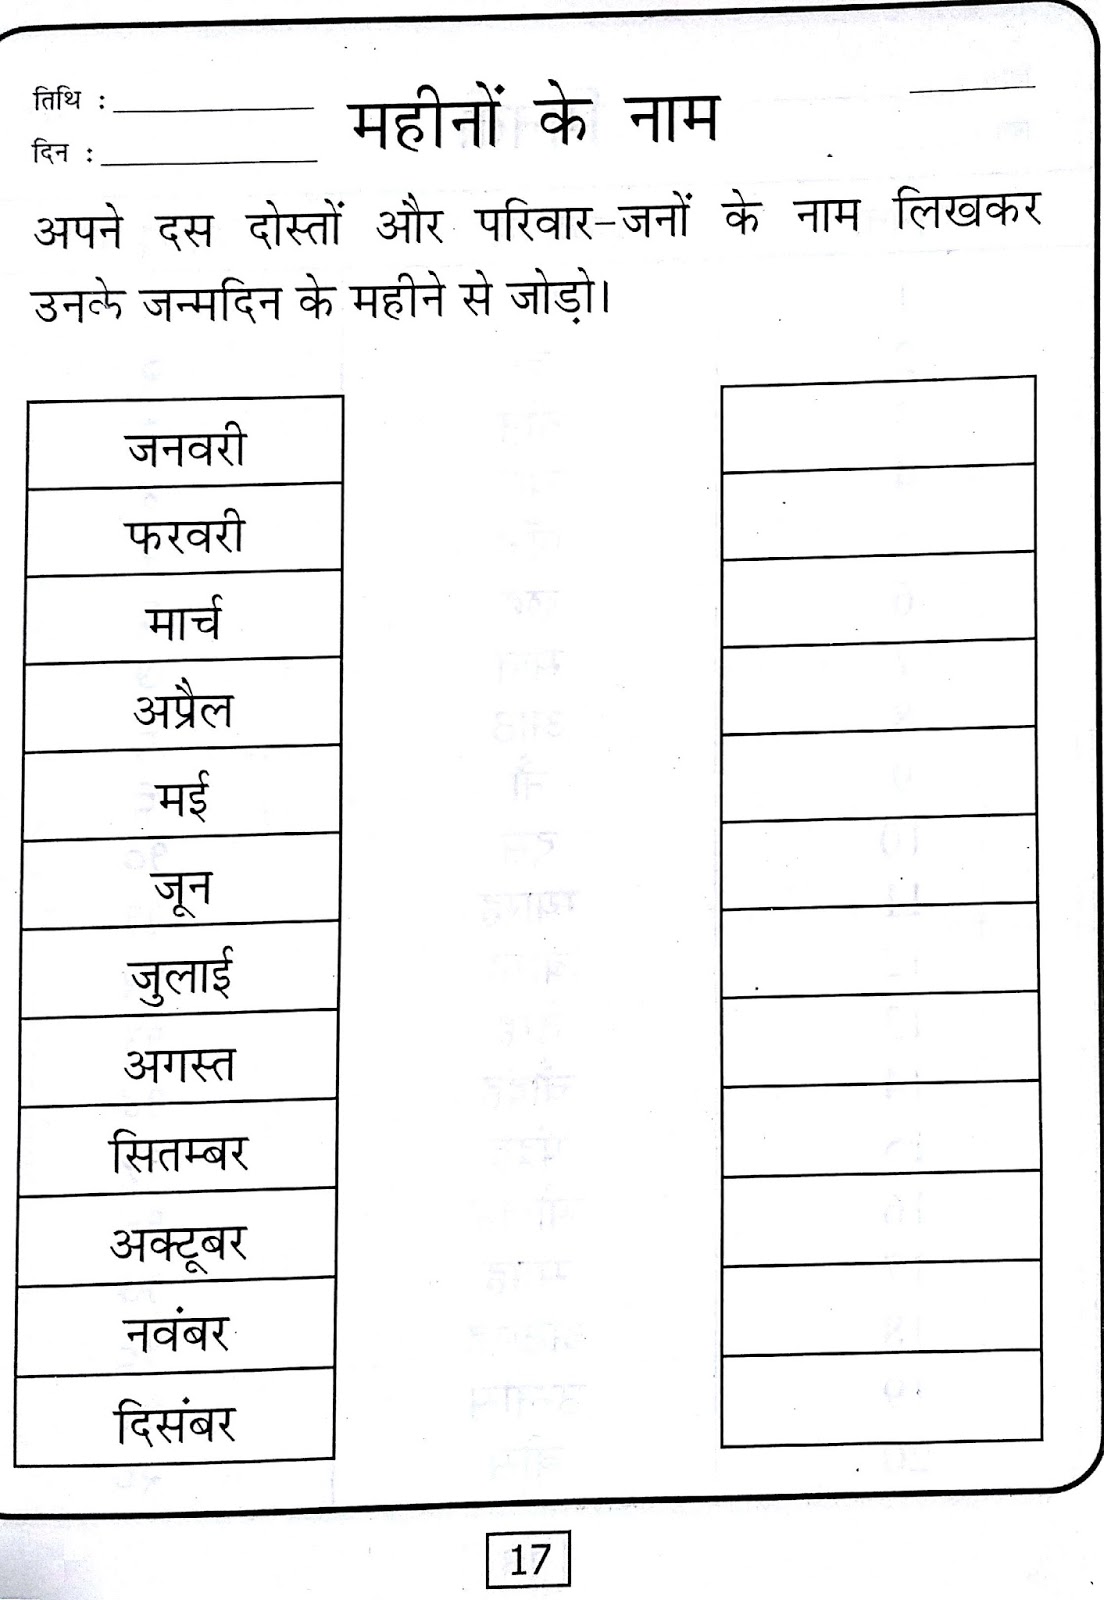 तिथि :
महीनों के नाम
दिन :
अपने दस दोस्तों और परिवार-जनों के नाम लिखकर
उनके जन्मदिन के महीने से जोड़ो।
जनवरी
फरवरी
मार्च
अप्रैल
मई
जून
जुलाई
अगस्त
सितम्बर
अक्टूबर
नवंबर
दिसंबर
17